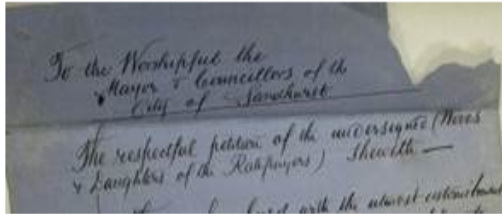 To the Worshipful the
Mayor & Councillors of the
City of Sandhurst
The respectful petition of the undersigned (Wives
& Daughters of the Ratepayers) Sheweth —
with the utmost astonishment